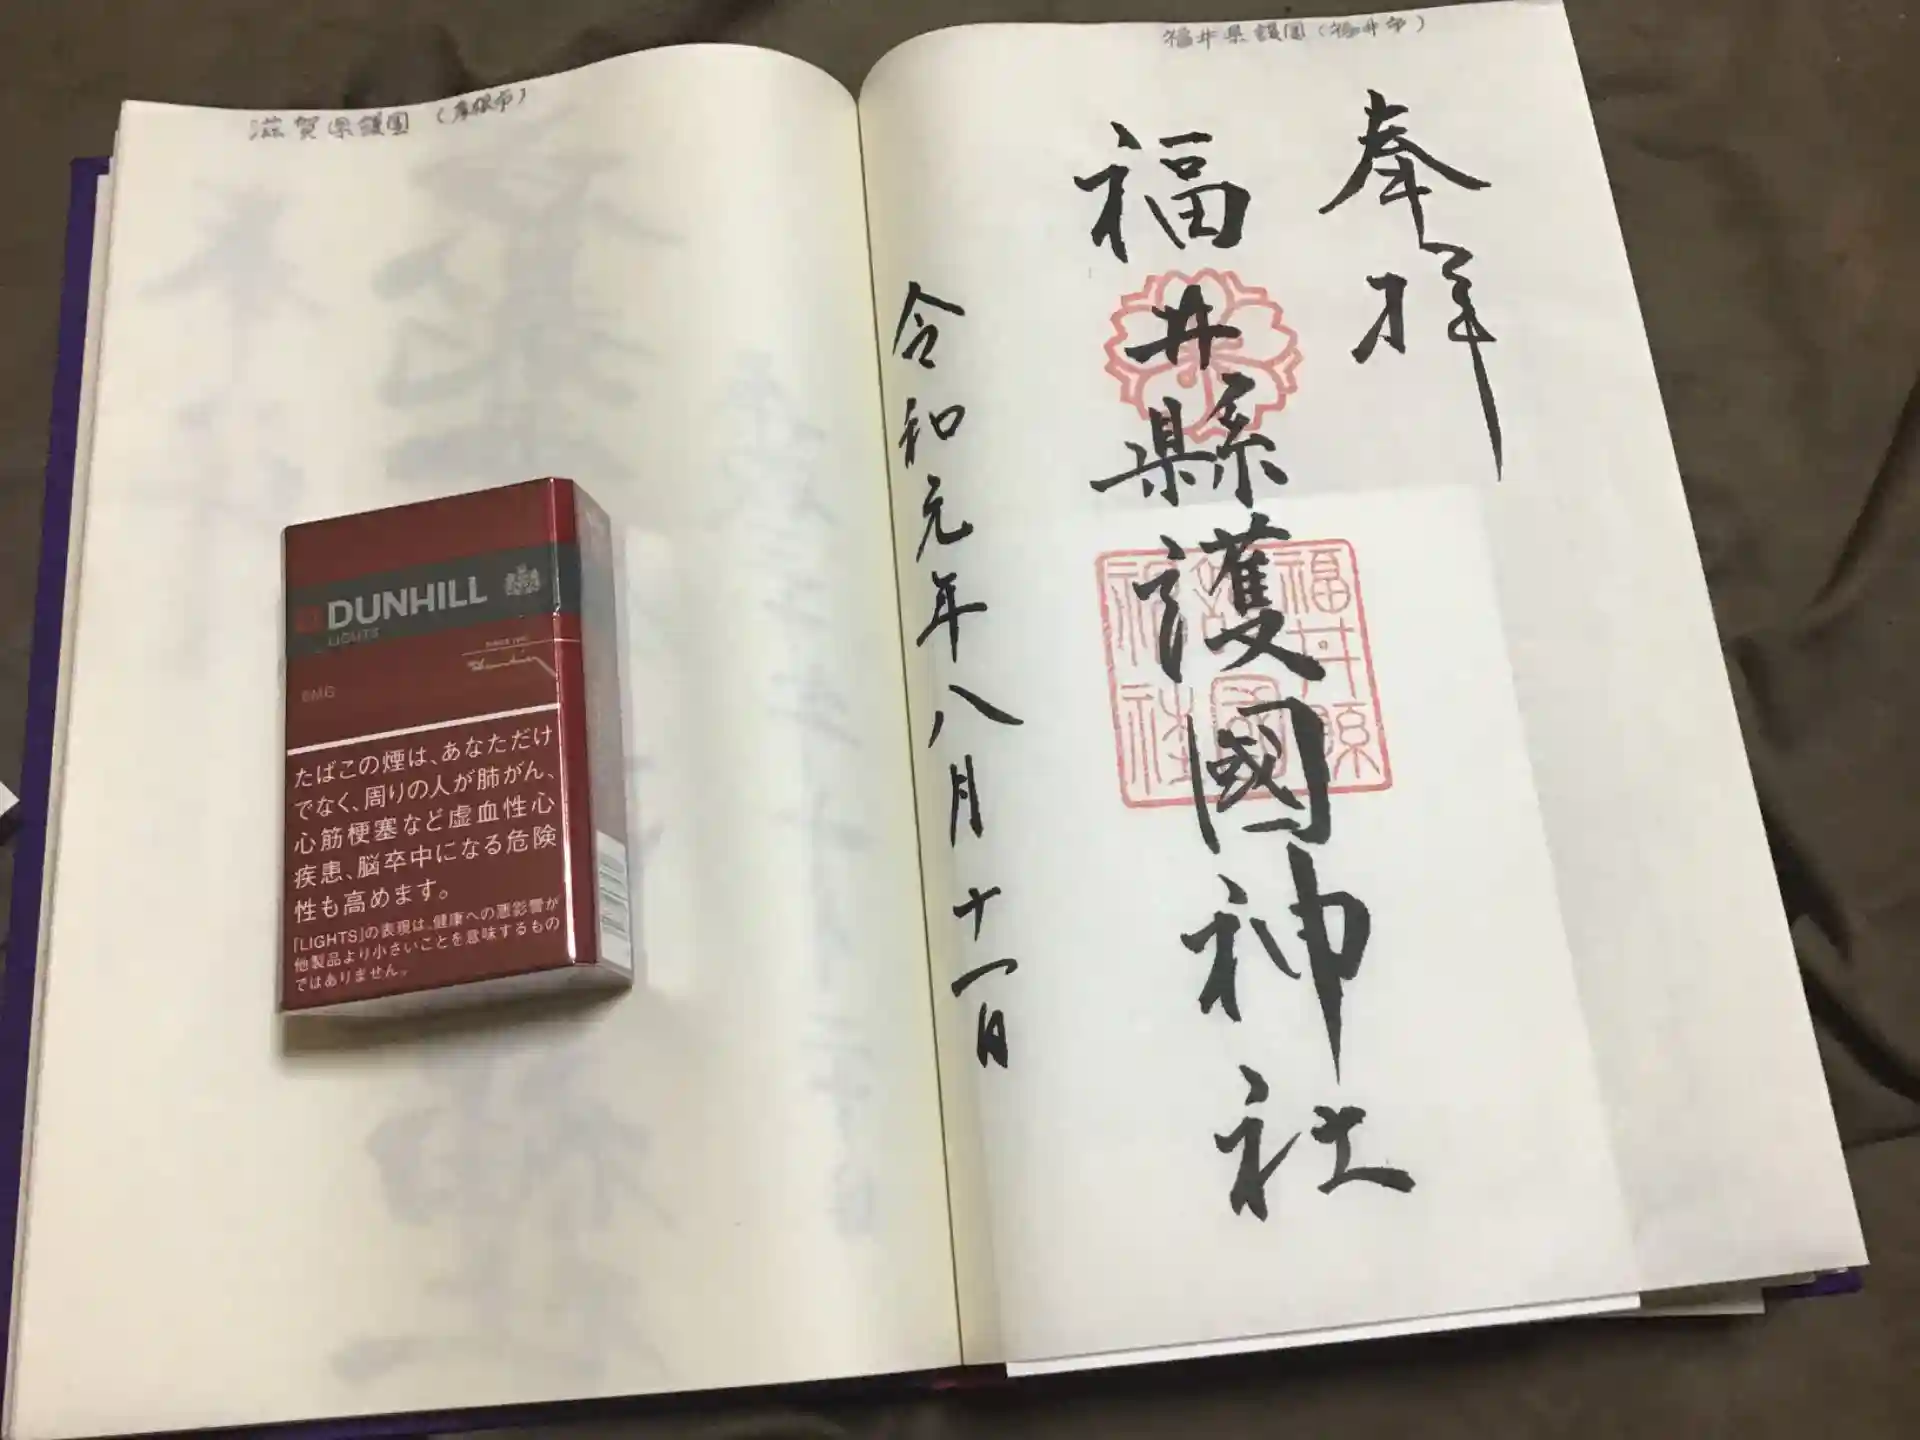 滋賀県護国（彦根市）
福井県護国（福井市）
奉拝
福井縣護國神社
令和元年八月十一日
福井縣
護國
神社
DUNHILL
LIGHTS
6MG
たばこの煙は、あなただけ
でなく、周りの人が肺がん、
心筋梗塞など虚血性心
疾患、脳卒中になる危険
性も高めます。
「LIGHTS」の表現は、健康への悪影響が
他製品より小さいことを意味するもの
ではありません。